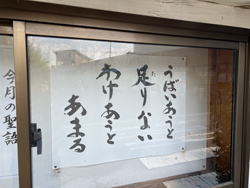 うばいあうと
足りない
わけあうと
あまる
今月の聖語